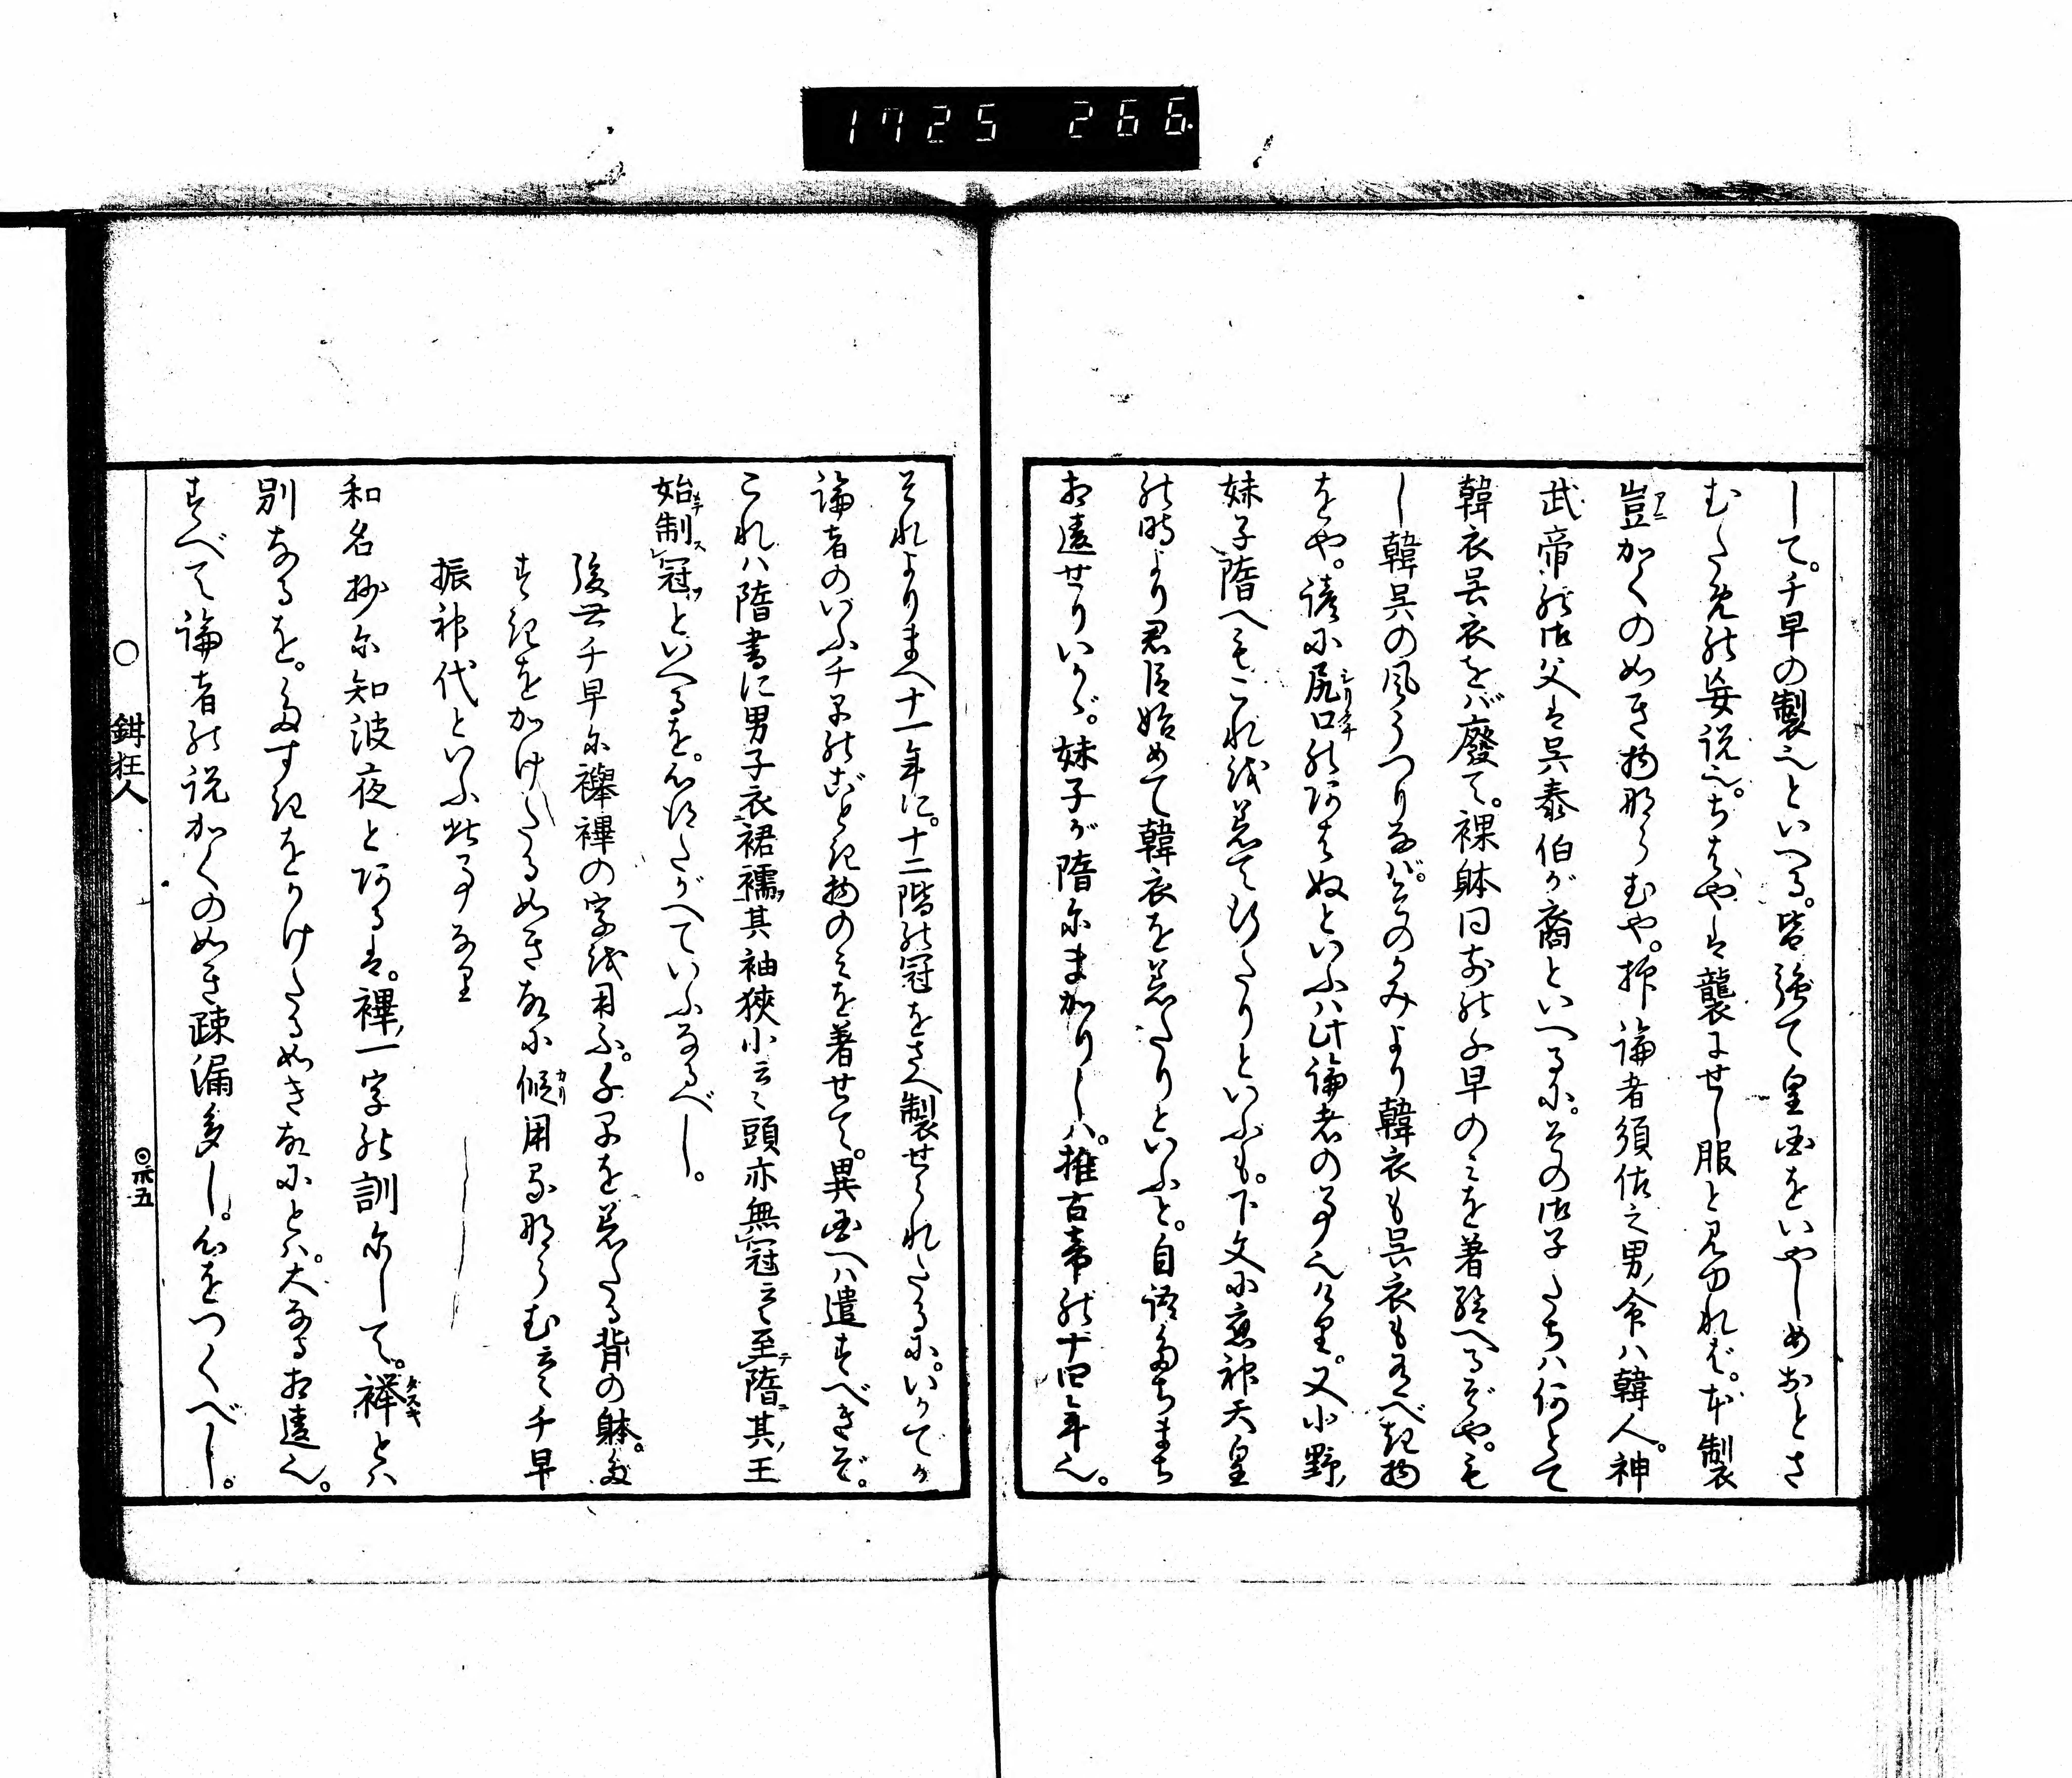 1725 266
して。千早の製也といへる。皆強て皇国をいやしめおとさ
むための妄説也。ちはやは襲にせし服と見ゆれど。本製
豈かくのぬき物ならむや。抑論者須佐之男命ハ韓人。神
武帝の御父は呉泰伯が裔といへるに。その御子たちハ何とて
韓衣呉衣をバ廃て。裸躰同前の千早のミを著給へるぞや。も
し韓呉の風うつりなバ。そのかみより韓衣も呉衣も有べき物
をや。諺に尻口のあはぬといふハ此論者の事也けり。又小野
妹子隋へもこれを着て行たりといふも。下文に應神天皇
の時より君臣始めて韓衣を着たりといふと。自語たちまち
相違せりいかゞ。妹子が隋にまかりしハ。推古帝の十四年也。
それよりまへ十一年に。十二階の冠をさへ製せられたるに。いかでか
論者のいふ千早のごとき物のミを著せて。異国へハ遣すべきぞ。
これハ隋書に男子衣裙襦其袖狭小云々頭亦無冠云々至隋其王
始制冠といへるを。心得たがへていふなるべし。
後世千早に襷襅の字を用ふ。千早を着たる背の躰。た
すきをかけたるぬき故に假用るならむ云々千早
振神代といふ此事なり
和名抄に知波夜とあるは。襅一字の訓にして。襷とハ
別なるを。たすきをかけたるぬき故にとハ。大なる相違也。
すべて論者の説かくのぬき疎漏多し。心をつくべし。
○鉗狂人
◎卅五